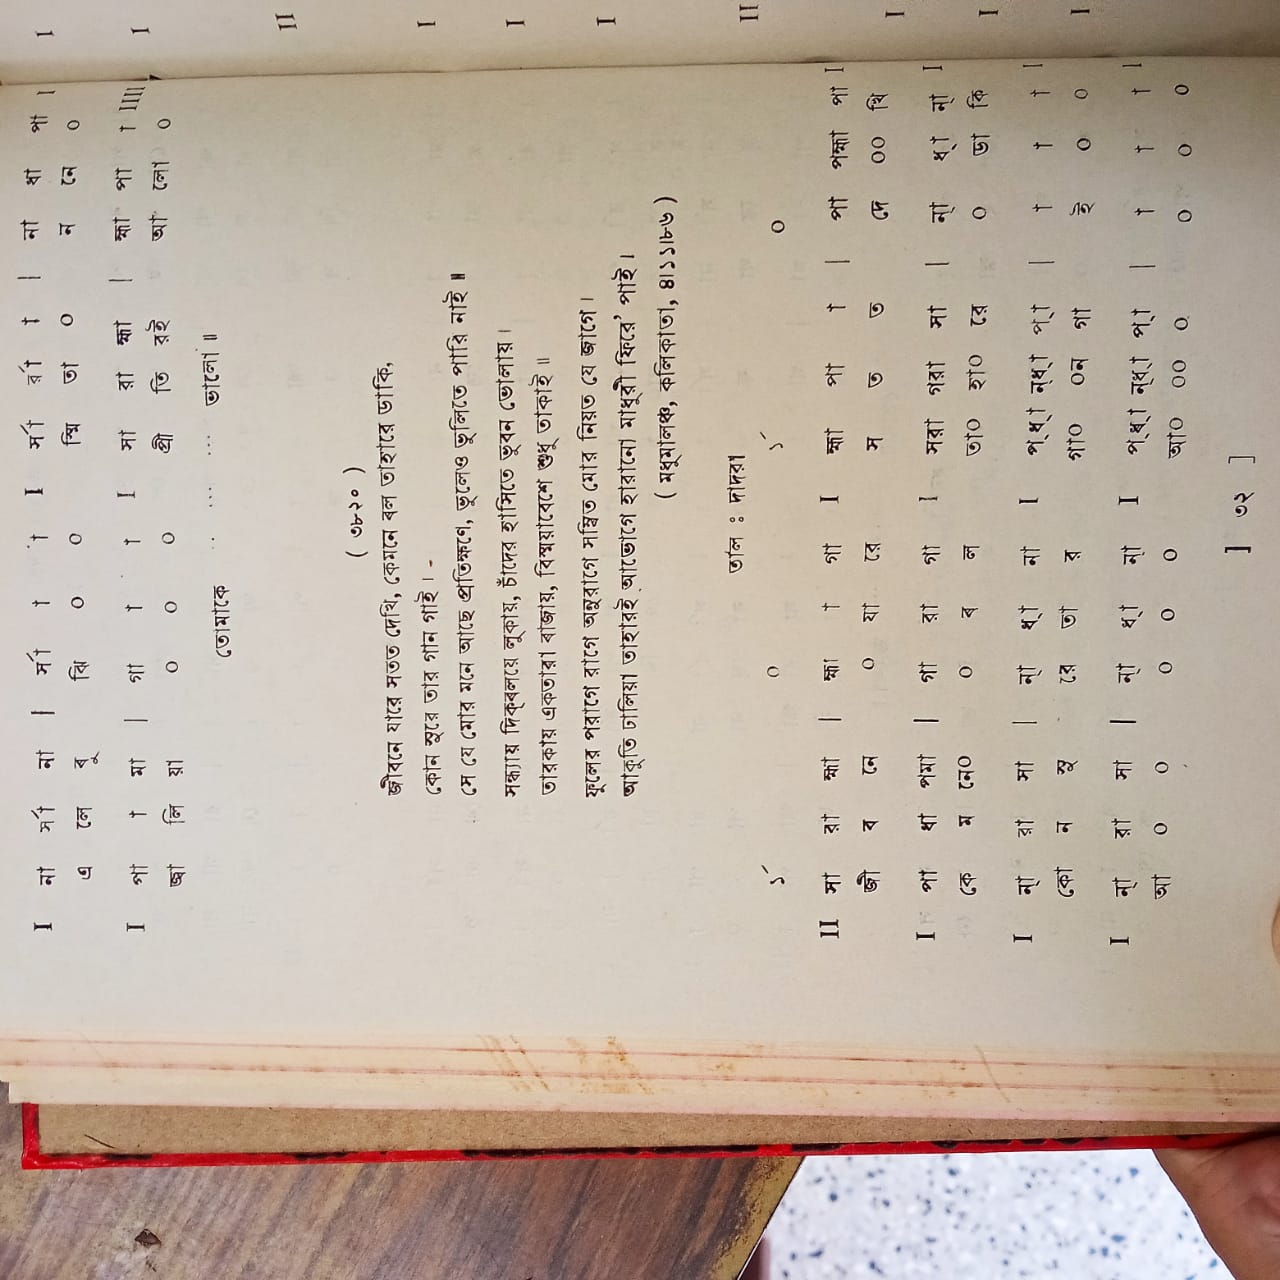 I না র্সা না | র্সা া া I র্সা র্রা া | না ধা পা I
এ লে বু ঝি ০ ০ স্মি তা ০ ন নে ০
I পা া মা | গা া া I সা রা হ্মা | হ্মা পা া IIII
জ্বা লি য়া ০ ০ ০ প্রী তি রই আ লো ০
তোমাকে ·· ··· ··· ভালো ॥
( ৩৮২০ )
জীবনে যারে সতত দেখি, কেমনে বল তাহারে ডাকি,
কোন সুরে তার গান গাই । -
সে যে মোর মনে আছে প্রতিক্ষণে, ভুলেও ভুলিতে পারি নাই ॥
সন্ধ্যায় দিক্‌বলয়ে লুকায়, চাঁদের হাসিতে ভুবন ভোলায় ।
তারকায় একতারা বাজায়, বিস্ময়াবেশে শুধু তাকাই ॥
ফুলের পরাগে রাগে অনুরাগে সম্বিত মোর নিয়ত যে জাগে ।
আকূতি ঢালিয়া তাহারই আভোগে হারানো মাধুরী ফিরে' পাই ।
( মধুমালঞ্চ, কলিকাতা, ৪।১১।৮৬ )
তাল : দাদরা
১´ ০ ১´ ০
II সা রা হ্মা | হ্মা া গা I হ্মা পা া | পা পহ্মা পা I
জী ব নে ০ যা রে স ত ত দে ০০ খি
I পা ধা পমা | গা রা গা I সরা গরা সা | ন্‌া ধ্‌া ন্‌া I
কে ম নে০ ০ ব ল তা০ হা০ রে ০ ডা কি
I ন্‌া রা সা | ন্‌া ধ্‌া না I প্‌ধ্‌া ন্‌ধ্‌া প্‌া | া া া I
কো ন সু রে তা র গা০ ০ন গা ই ০ ০
I ন্‌া রা সা | ন্‌া ধ্‌া ন্‌া I প্‌ধ্‌া ন্‌ধ্‌া প্‌া | া া া I
আ ০ ০ ০ ০ ০ আ০ ০০ ০ ০ ০ ০
] ৩২ ]